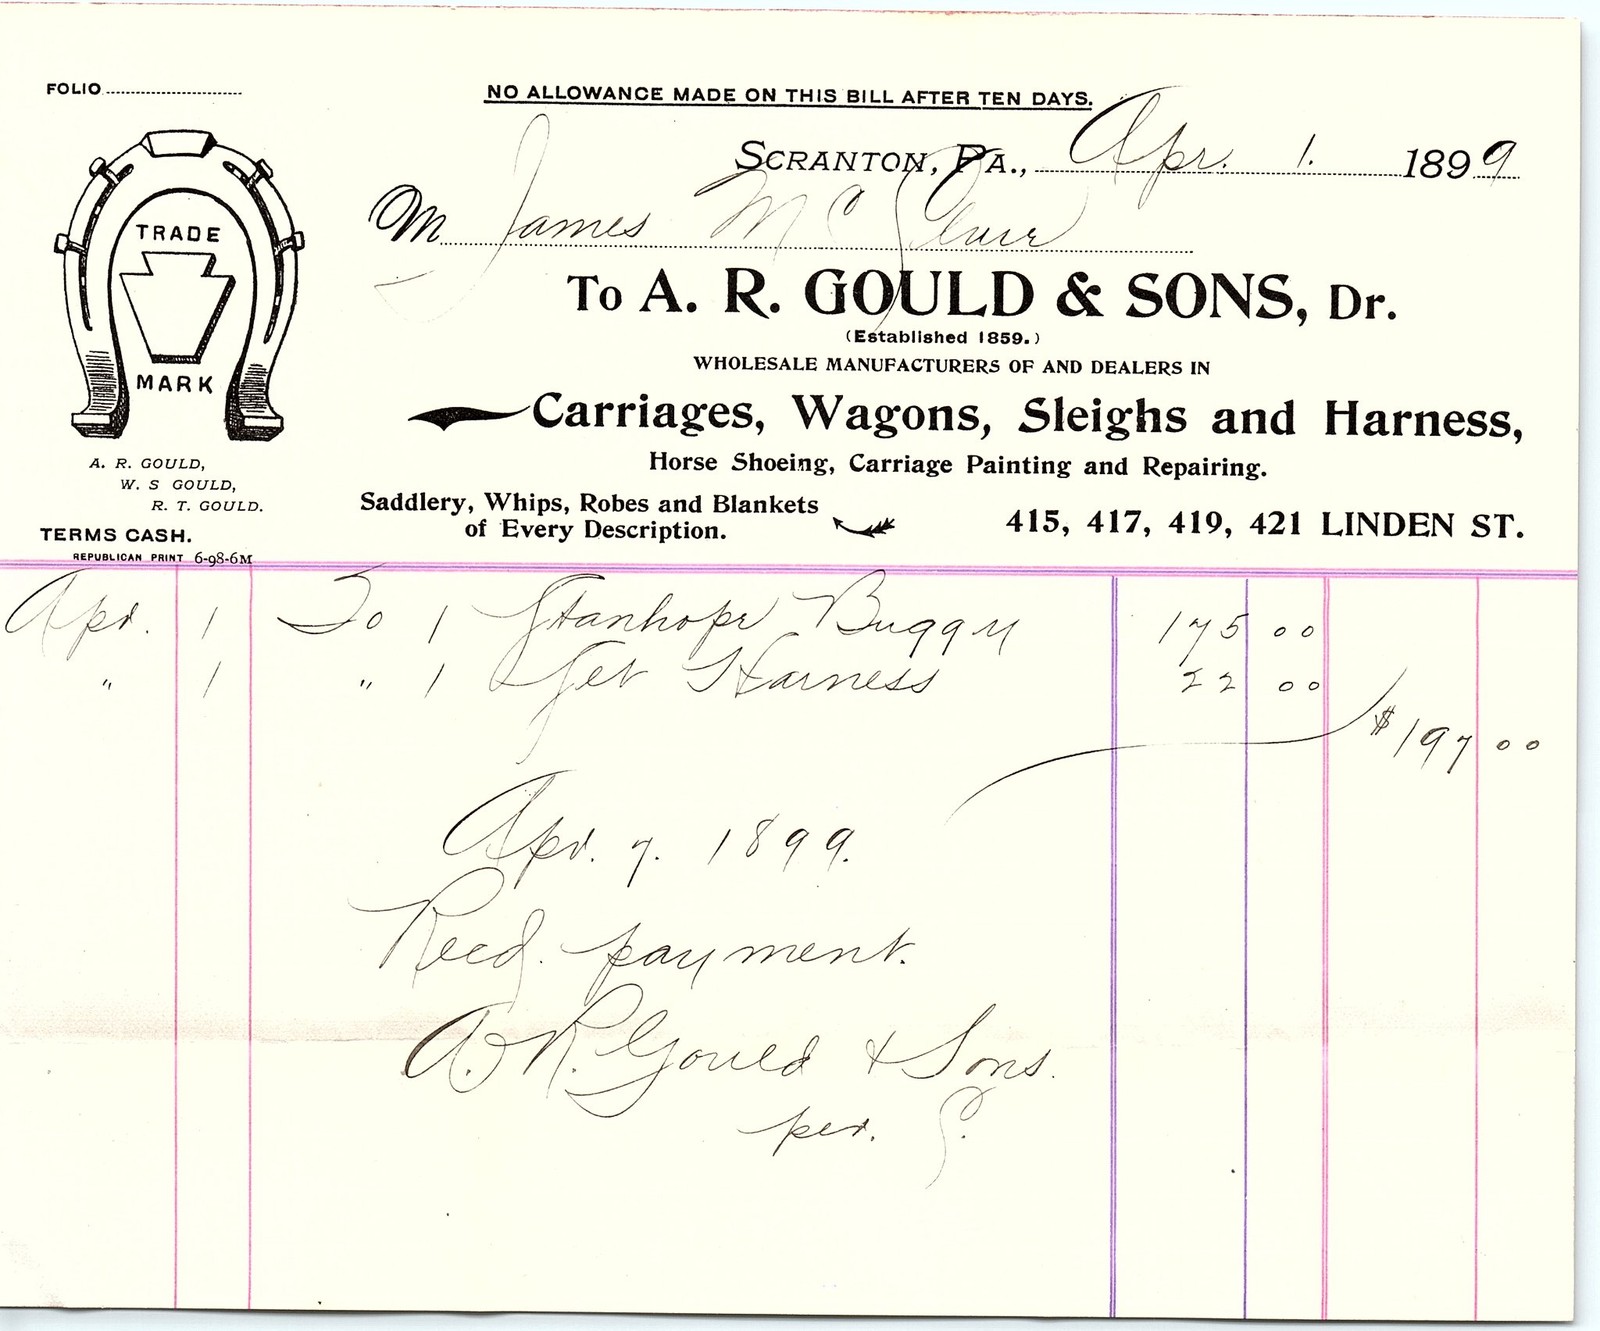 FOLIO
NO ALLOWANCE MADE ON THIS BILL AFTER TEN DAYS.
SCRANTON, PA., Apr. 1. 1899
M James Mc
TRADE
MARK
To A. R. GOULD & SONS, Dr.
(Established 1859.)
WHOLESALE MANUFACTURERS OF AND DEALERS IN
Carriages, Wagons, Sleighs and Harness,
Horse Shoeing, Carriage Painting and Repairing.
A. R. GOULD,
W. S GOULD,
R. T. GOULD.
Saddlery, Whips, Robes and Blankets
of Every Description.
415, 417, 419, 421 LINDEN ST.
TERMS CASH.
REPUBLICAN PRINT 6-98-6M
Apr. 1 To 1 Stanhope Buggy 175 00
" 1 " 1 Set Harness 22 00
$197 00
Apr. 7. 1899.
Recd. payment.
A. R. Gould & Sons.
per.